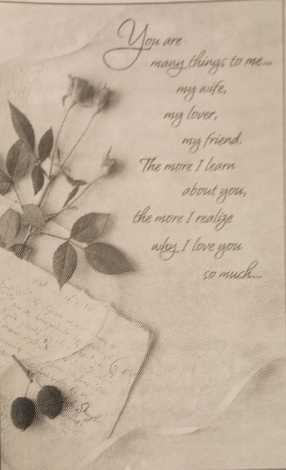 You are
many things to me...
my wife,
my lover,
my friend.
The more I learn
about you,
the more I realize
why I love you
so much....